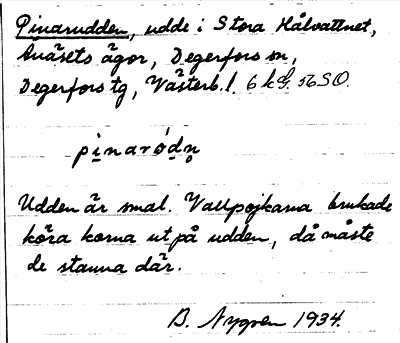 Pinarudden, udde i Stora Hålvattnet,
Anäsets ägor, Degerfors sn,
Degerfors tg, Västerb. l.
pinaródn
Udden är smal. Vallpojkarna brukade
köra korna ut på udden, då måste
de stanna där.
B. Nygren 1934.